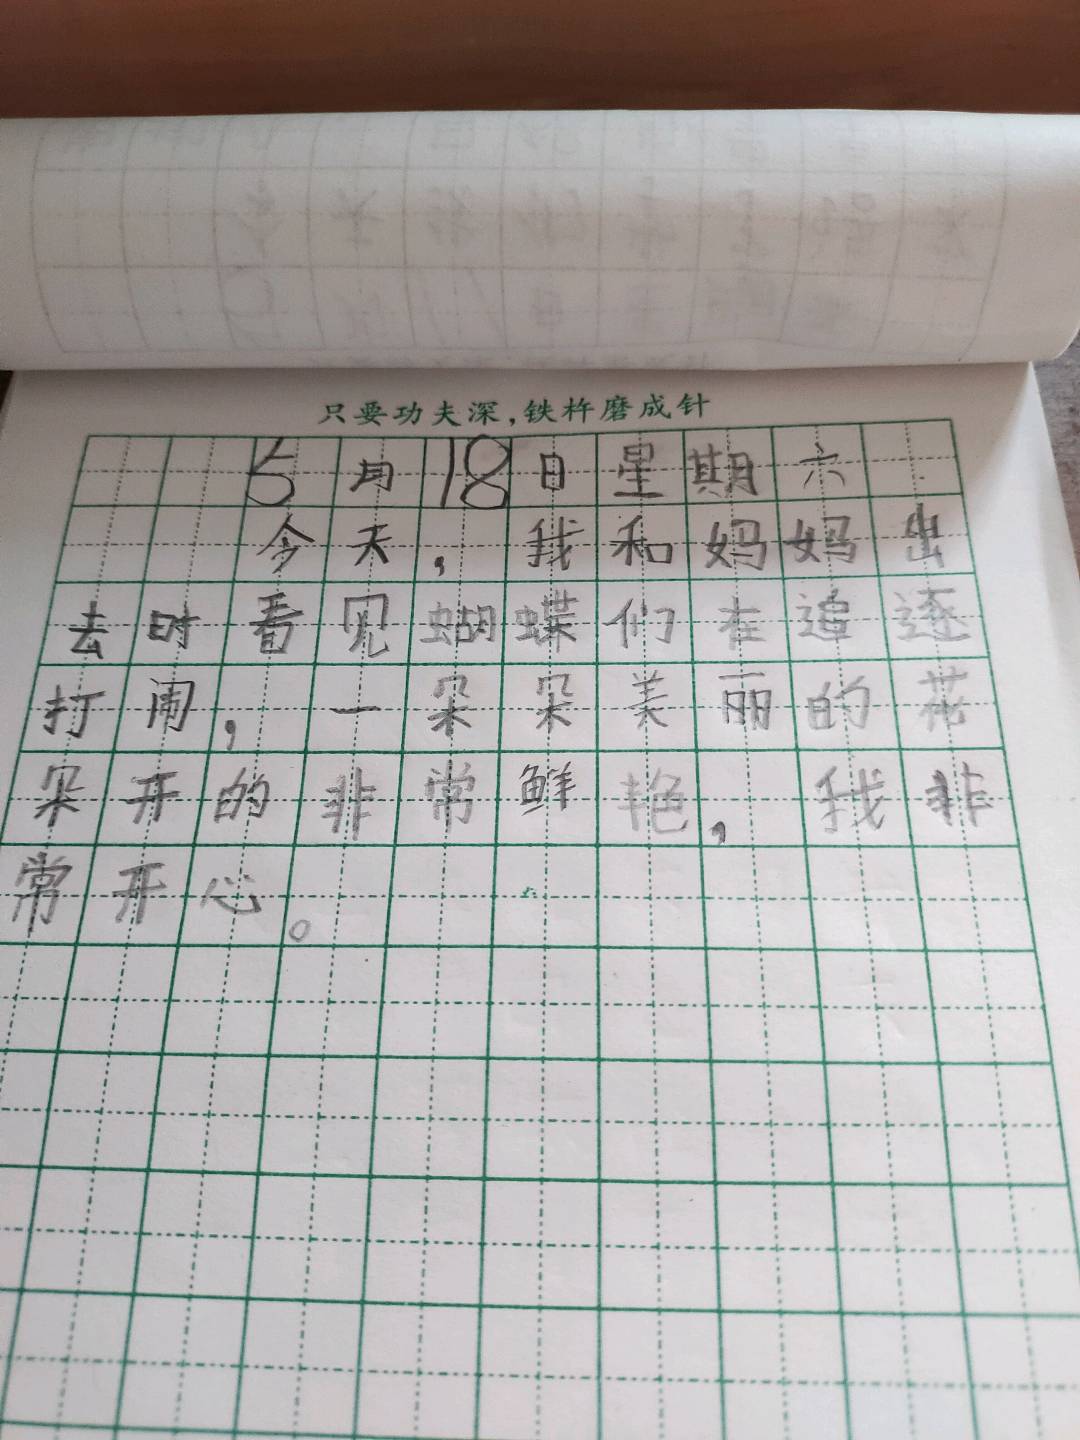 只要功夫深,铁杵磨成针
5月18日星期六
今天,我和妈妈出
去时看见蝴蝶们在追逐
打闹,一朵朵美丽的花
朵开的非常鲜艳,我非
常开心。